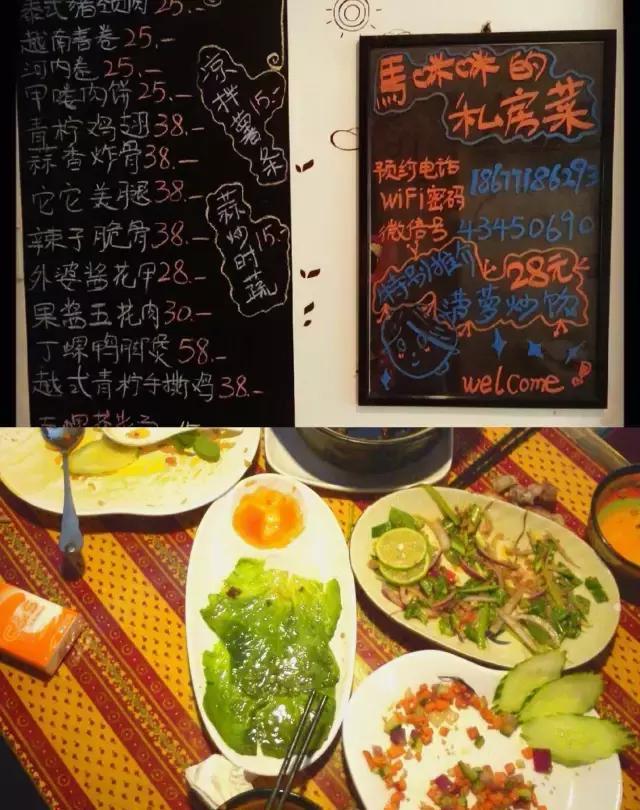 泰式猪颈肉25.-
越南春卷25.-
河内卷25.-
甲喽肉饼25.-
青柠鸡翅38.-
蒜香炸骨38.-
它它美腿38.-
辣子脆骨38.-
外婆酱花甲28.-
果酱五花肉30.-
丁螺鸭脚煲58.-
越式青柠手撕鸡38.-
凉拌薯条15.-
蒜炒时蔬15.-
馬咪咪的
私房菜
预约电话
18677186293
WiFi密码
微信号
43450690
特别推介
28元
菠萝炒饭
welcome